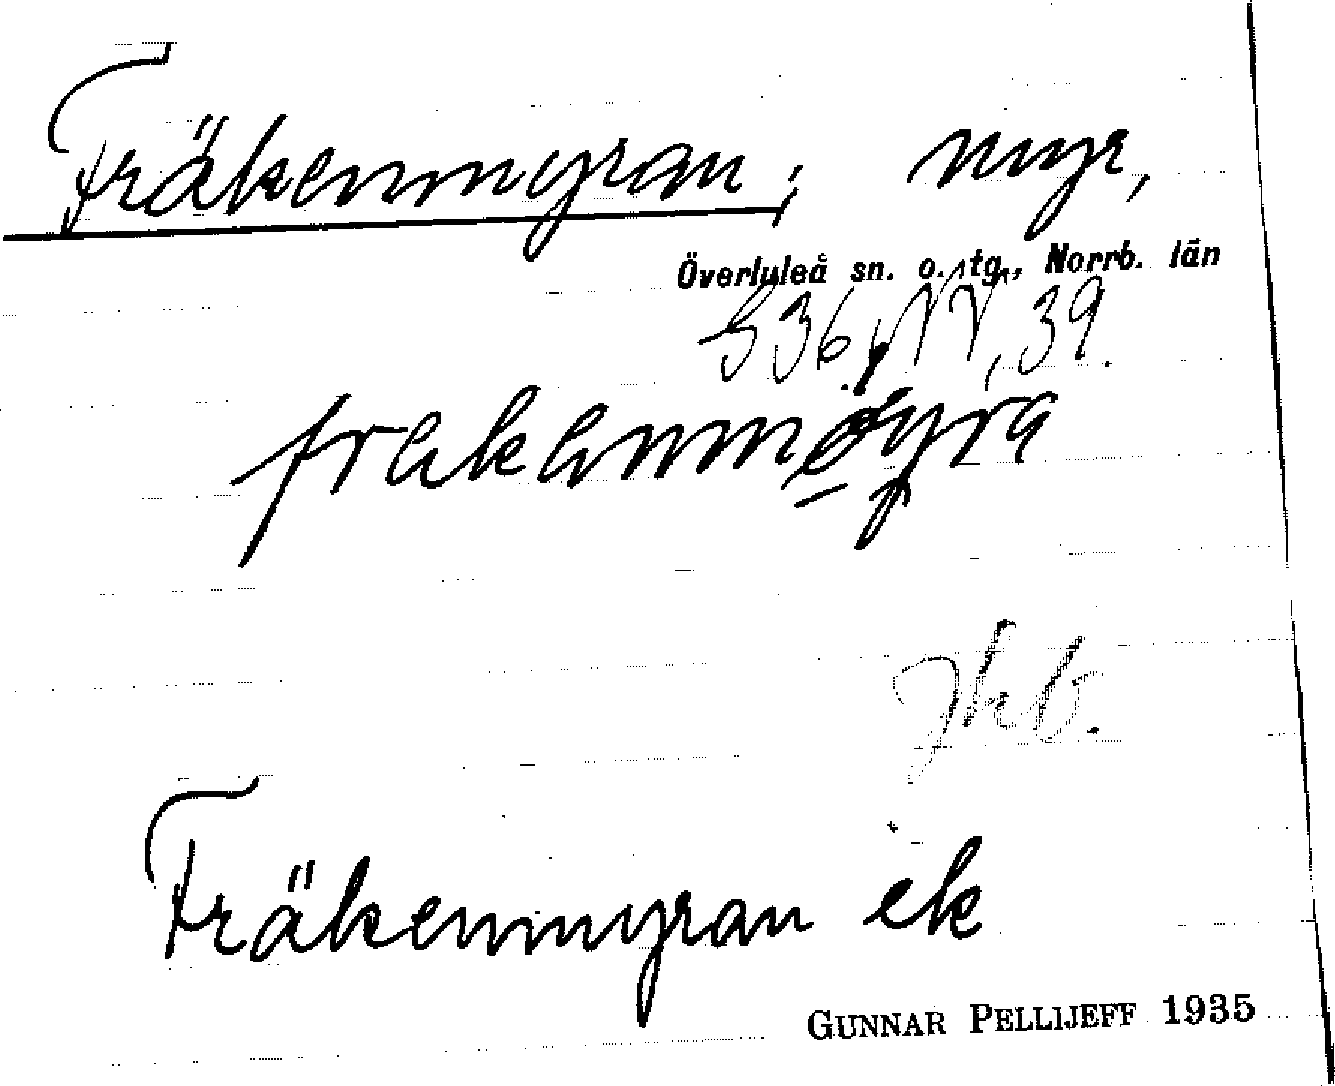 Fräkenmyran, myr,
Överluleå sn. o. tg., Norrb. län
S 36.
Jkb.
Fräkenmyran ek
GUNNAR PELLIJEFF 1935